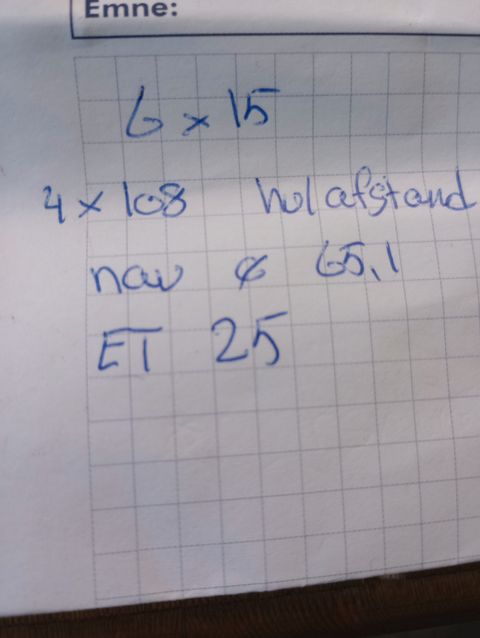 Emne:
6 x 15
4 x 108 hul afstand
nav ¢ 65,1
ET 25